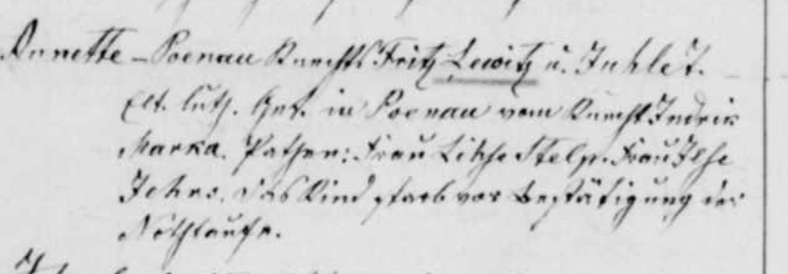 Annette – Poenau Knechts Fritz Lewitz u. Juhle T.
Elt. luth. Get. in Poenau vom Knecht Indrik
Marka. Pathen: Frau Lihse Stelp. Frau Ilse
Jehns. Das Kind starb vor Bestätigung der
Nothtaufe.